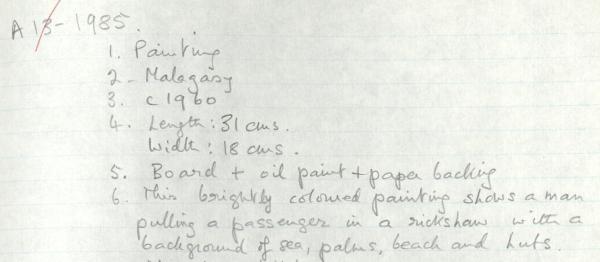 A 13-1985.
1. Painting
2 - Malagasy
3. c 1960
4. Length: 31 cms.
Width: 18 cms.
5. Board + oil paint + paper backing
6. This brightly coloured painting shows a man
pulling a passenger in a rickshaw with a
background of sea, palms, beach and huts.